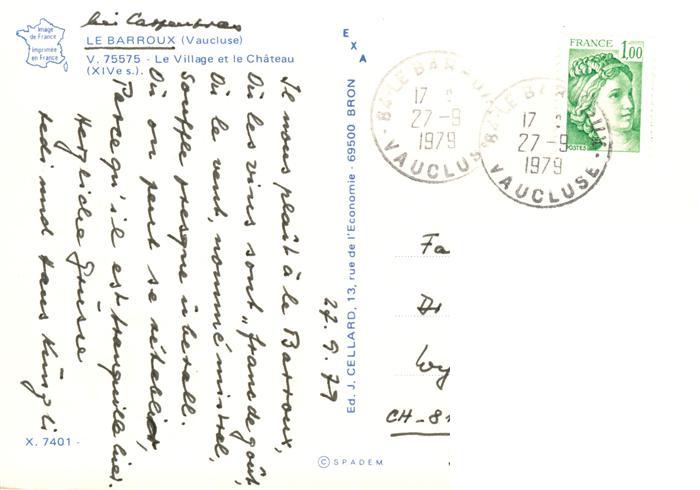 bei Carpentras
Image
de France
Imprimée
en France
LE BARROUX (Vaucluse)
V. 75575 - Le Village et le Château
(XIVe s.).
27.9.79
Il nous plaît à le Barroux,
Où les vins sont „franc de goût,
Où le vent, nommé mistral,
Souffle presque überall.
Où on peut se rétablir,
Parce qu'il est tranquille hier.
Herzliche Grüsse
hans Küngli
X. 7401 -
EXA
Ed. J. CELLARD, 13, rue de l'Economie - 69500 BRON
© SPADEM
84-LE BARROUX
17
27-9
1979
VAUCLUSE
84-LE BARROUX
17
27-9
1979
VAUCLUSE
FRANCE
1,00
POSTES
Fa
Dr
Wy
CH-81